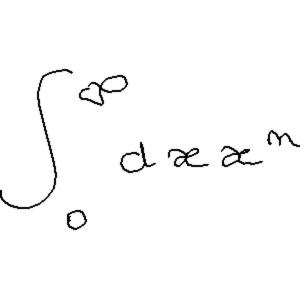 ∫₀^∞ dx xⁿ